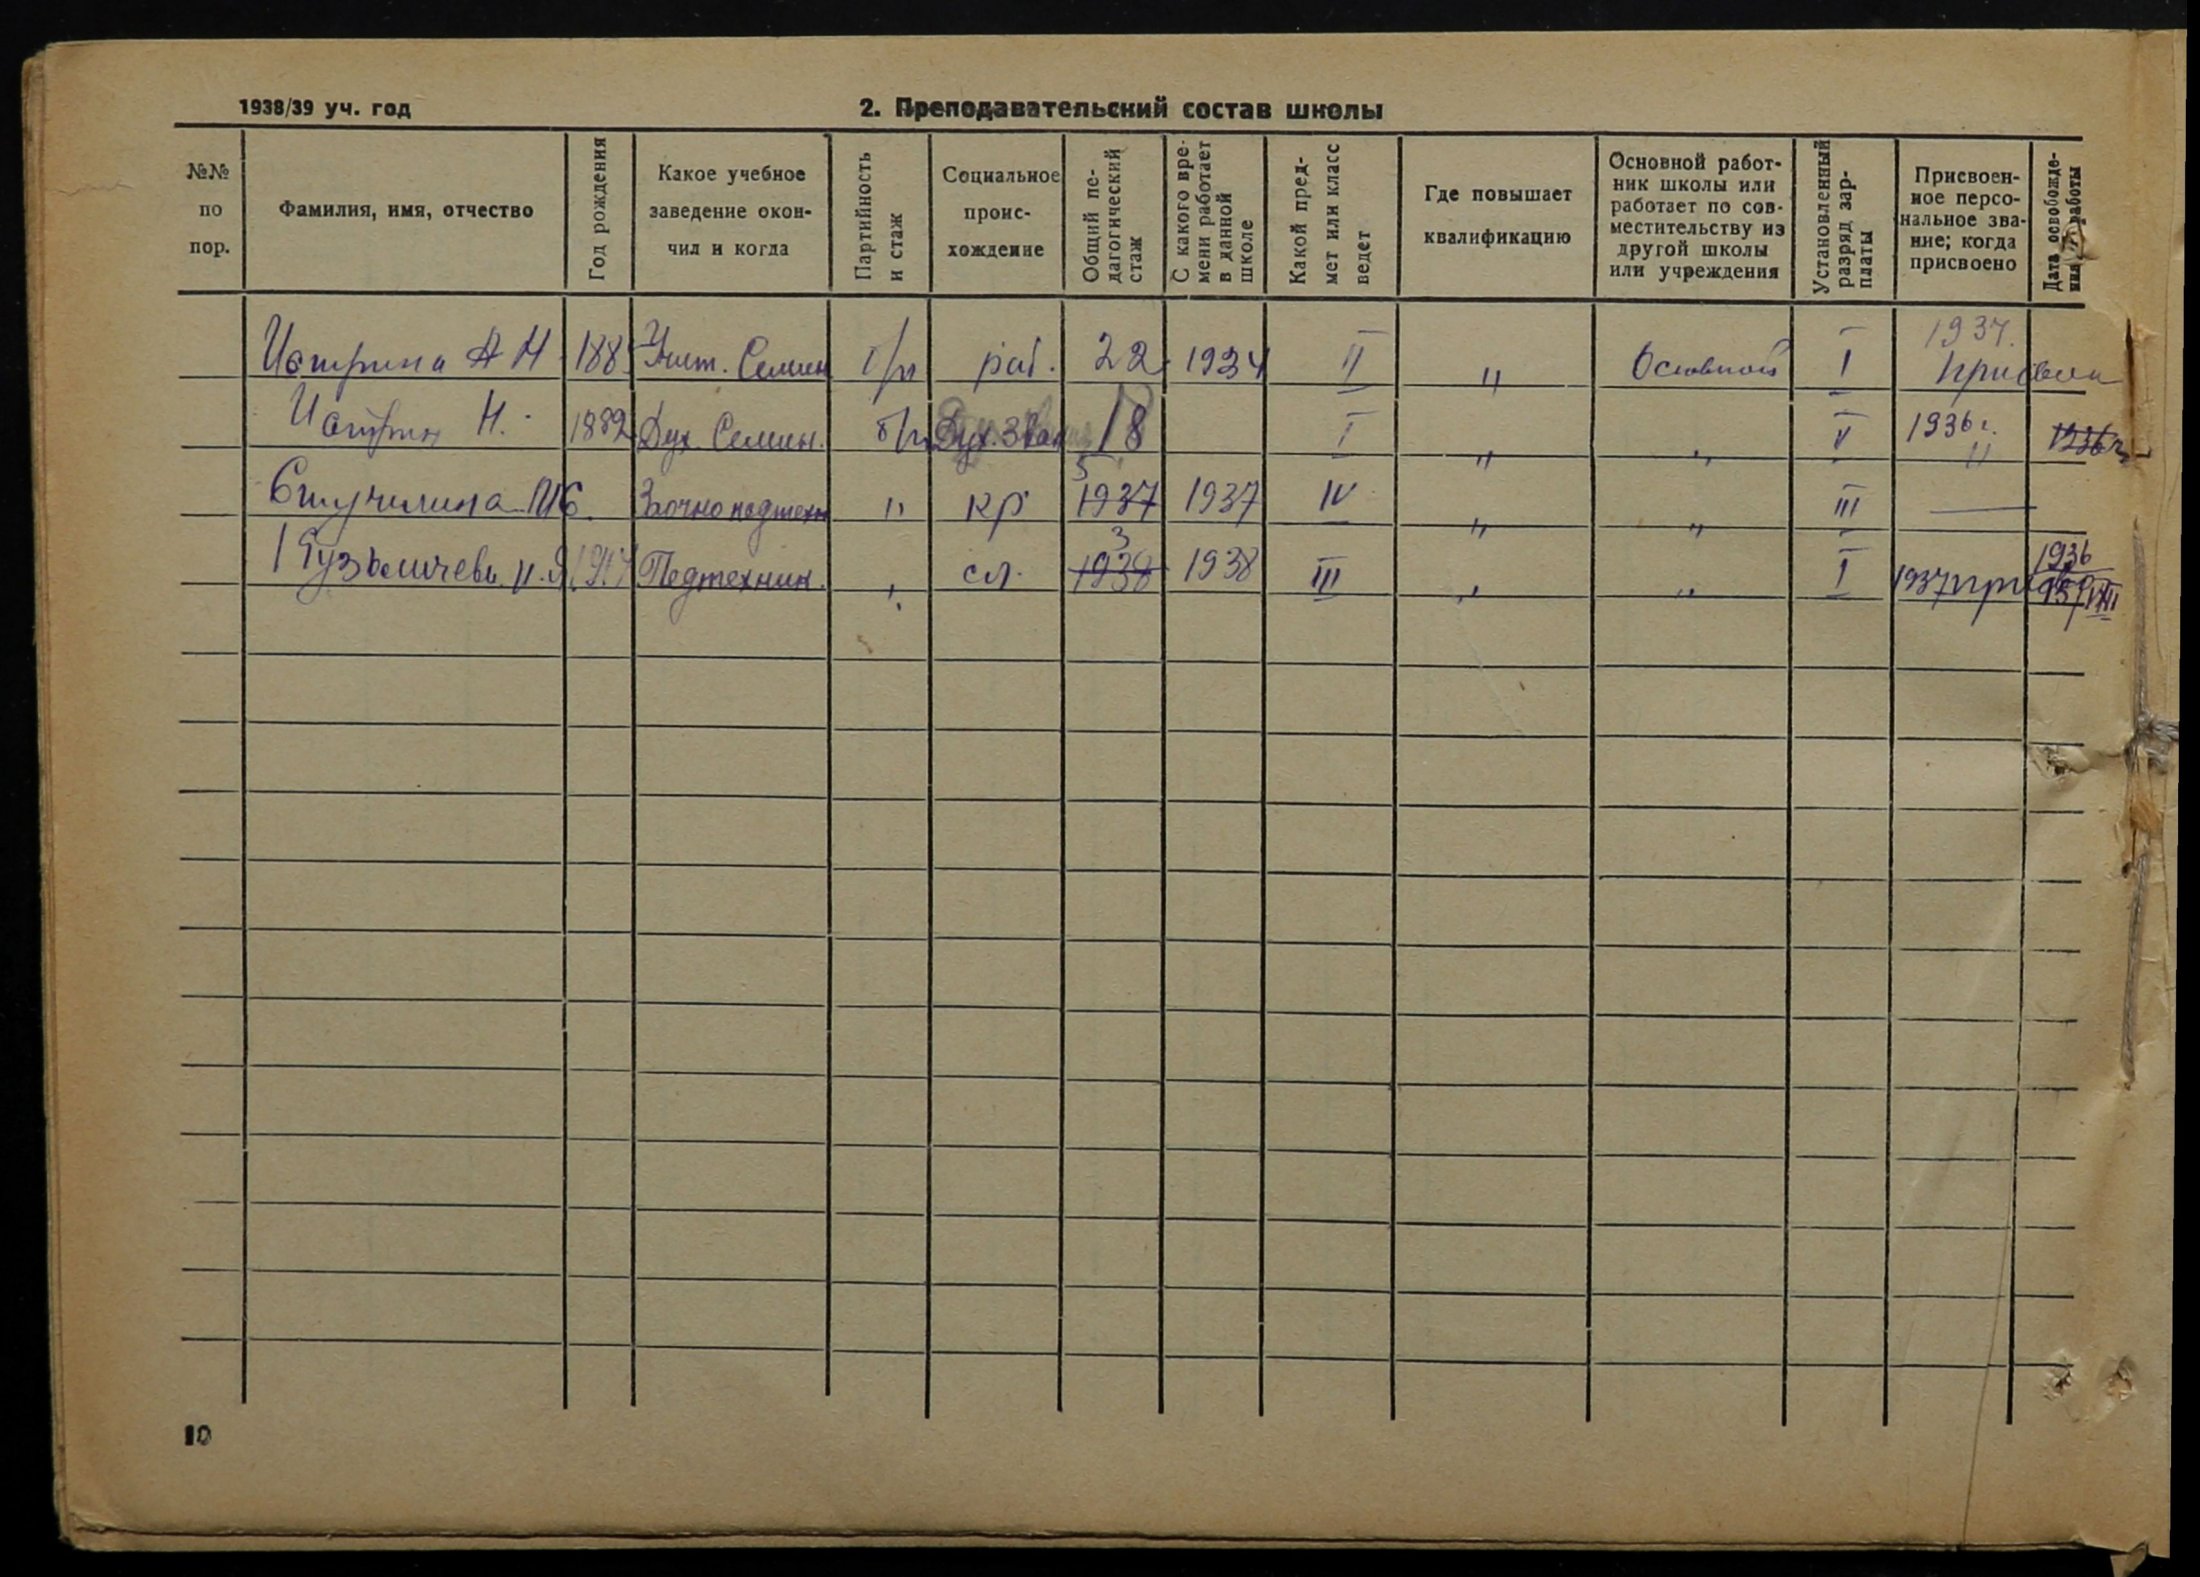 1938/39 уч. год
2. Преподавательский состав школы
№№ по пор.
Фамилия, имя, отчество
Год рождения
Какое учебное заведение окон-
чил и когда
Партийность и стаж
Социальное проис-
хождение
Общий пе-
дагогический стаж
С какого вре-
мени работает в данной школе
Какой пред-
мет или класс ведет
Где повышает квалификацию
Основной работ-
ник школы или
работает по сов-
местительству из
другой школы
или учреждения
Установленный разряд зар-
платы
Присвоен-
ное персо-
нальное зва-
ние; когда
присвоено
Дата освобожде-
ния работы
Истрина А Н 188 Учит. Семин б/п раб. 22 1934 II " Основной I 1937. присвоен
Истрин Н. 1882 Дух. Семин. б/п Дух. Зван 18 I " " V 1936 г. " 1936 г.
Заочно педтехн " кр 5 1937 1937 IV " " III —
Кузьмичева 1917 Педтехник. " сл. 3 1938 1938 III " " I 1937 1936
10